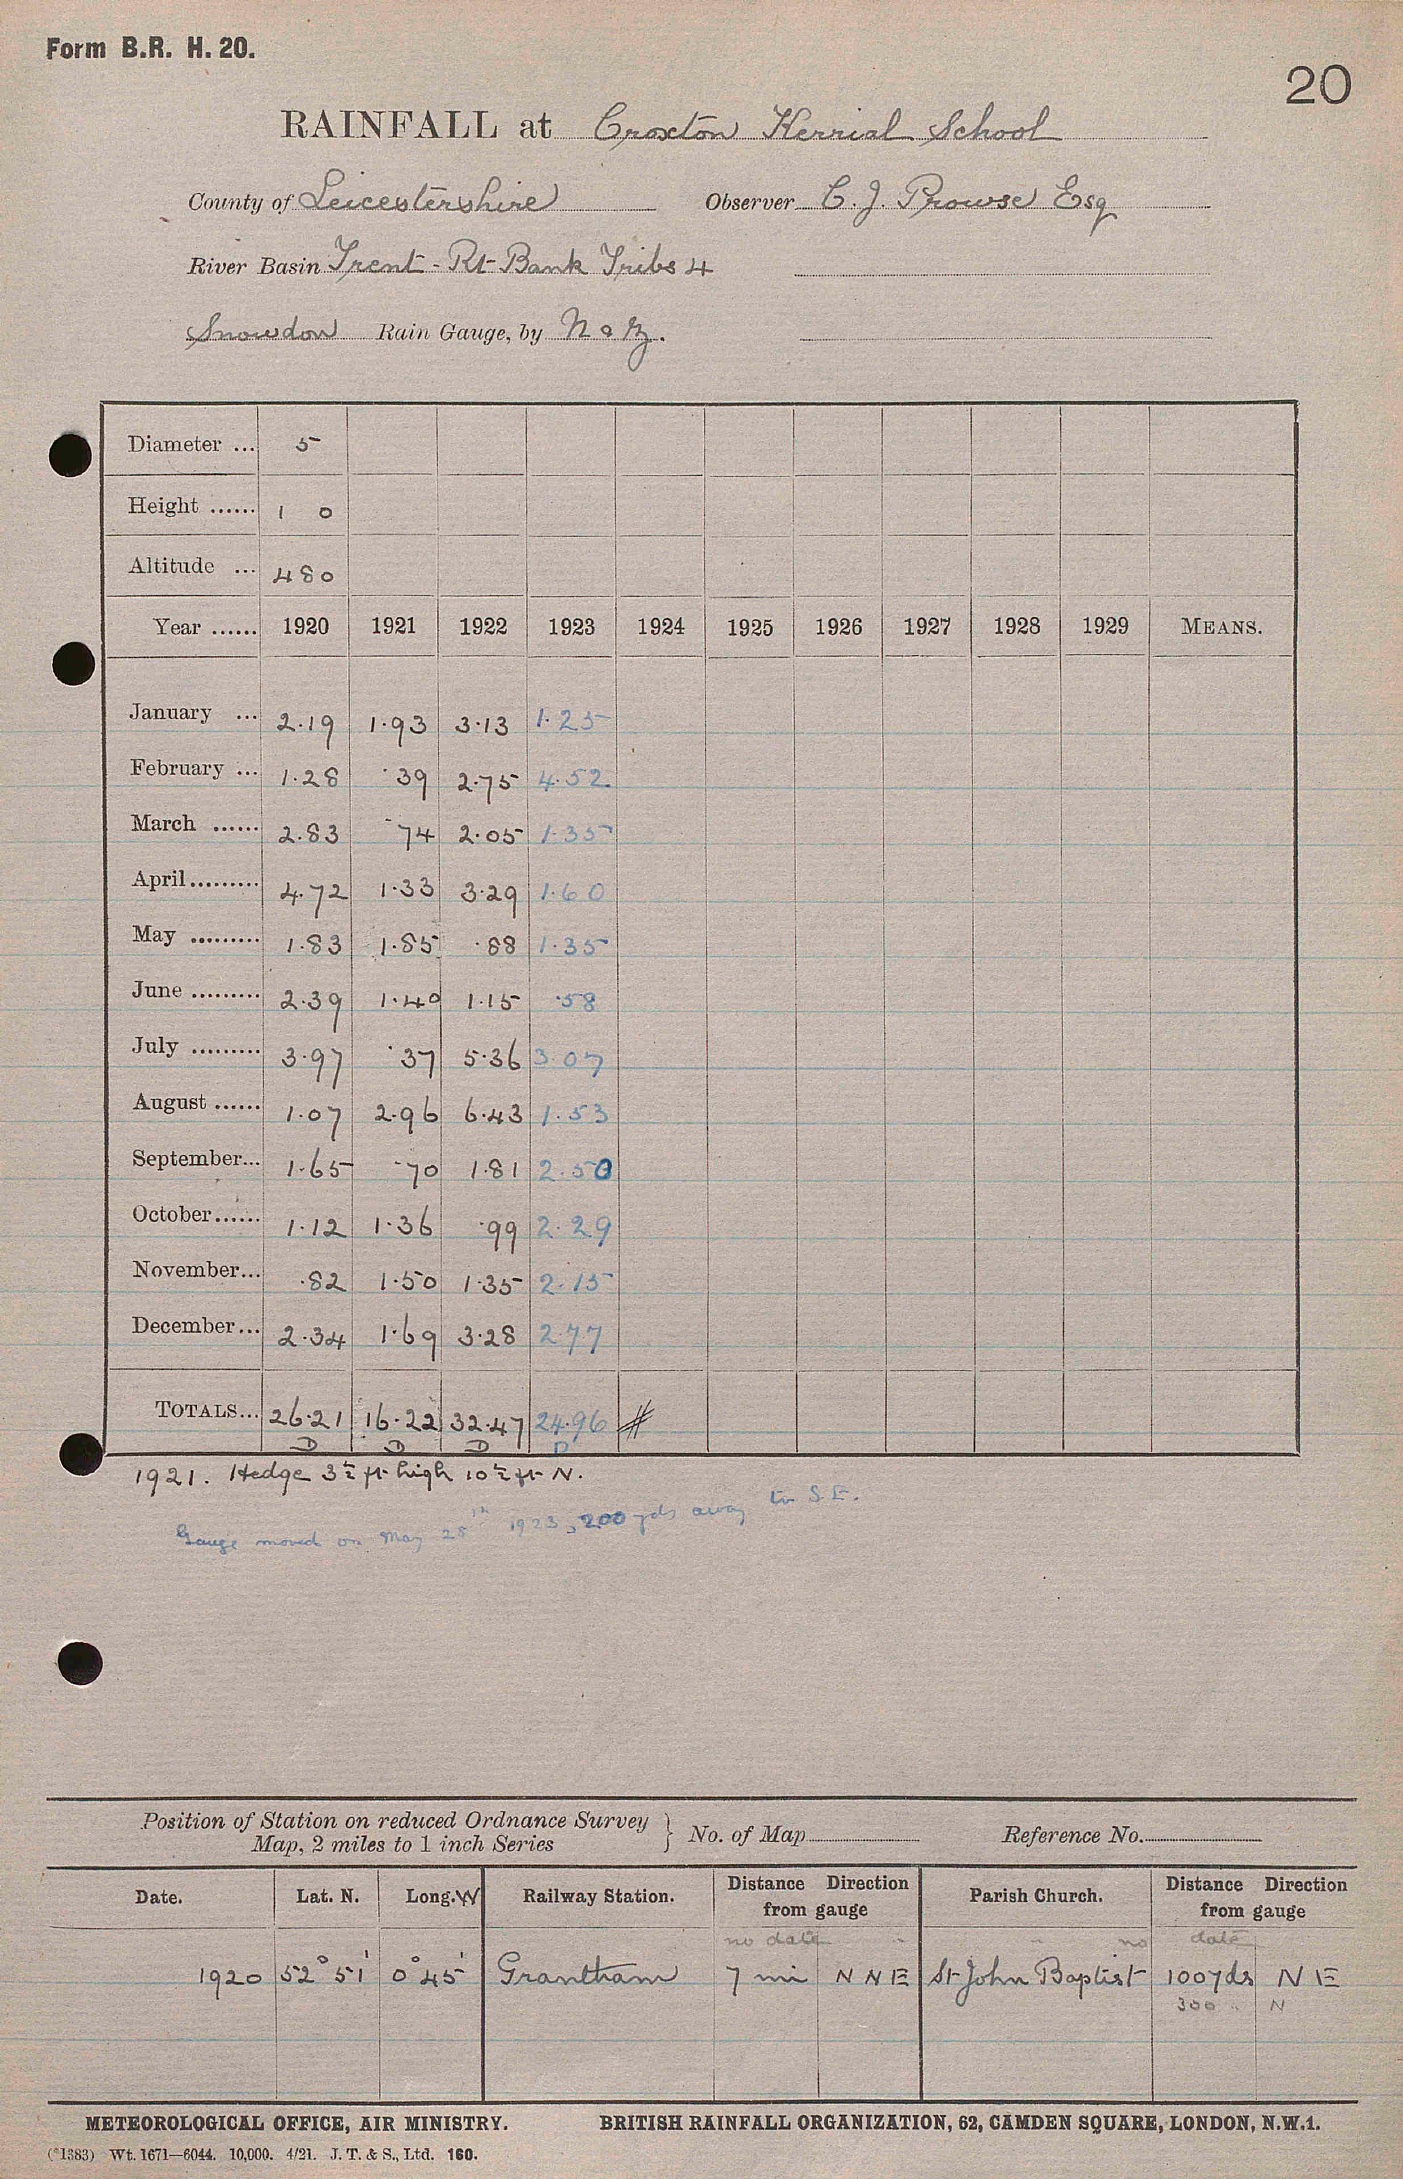 Form B.R. H. 20.
20
RAINFALL at Croxton Kerrial School
County of Leicestershire Observer C. J. Prowse Esq
River Basin Trent - Rt Bank Tribs 4
Snowdon Rain Gauge, by N & Z.
Diameter ... 5
Height ...... 1 0
Altitude ... 480
Year ...... 1920 1921 1922 1923 1924 1925 1926 1927 1928 1929 MEANS.
January ... 2.19 1.93 3.13 1.25
February ... 1.28 .39 2.75 4.52
March ...... 2.83 .74 2.05 1.35
April......... 4.72 1.33 3.29 1.60
May ......... 1.83 1.85 .88 1.35
June ......... 2.39 1.40 1.15 .58
July ......... 3.97 .37 5.36 3.07
August ...... 1.07 2.96 6.43 1.53
September... 1.65 .70 1.81 2.50
October...... 1.12 1.36 .99 2.29
November... .82 1.50 1.35 2.15
December... 2.34 1.69 3.28 2.77
TOTALS... 26.21 16.22 32.47 24.96 #
D D D D
1921. Hedge 3½ ft high 10½ ft N.
Gauge moved on May 28th 1923, 200 yds away to S.E.
Position of Station on reduced Ordnance Survey
Map, 2 miles to 1 inch Series } No. of Map Reference No.
Date. Lat. N. Long. W Railway Station. Distance Direction from gauge Parish Church. Distance Direction from gauge
no date " " no date
1920 52° 51' 0° 45' Grantham 7 mi N N E St John Baptist 100 yds N E
300 " N
METEOROLOGICAL OFFICE, AIR MINISTRY. BRITISH RAINFALL ORGANIZATION, 62, CAMDEN SQUARE, LONDON, N.W.1.
(*1383) Wt. 1671—6044. 10,000. 4/21. J. T. & S., Ltd. 160.